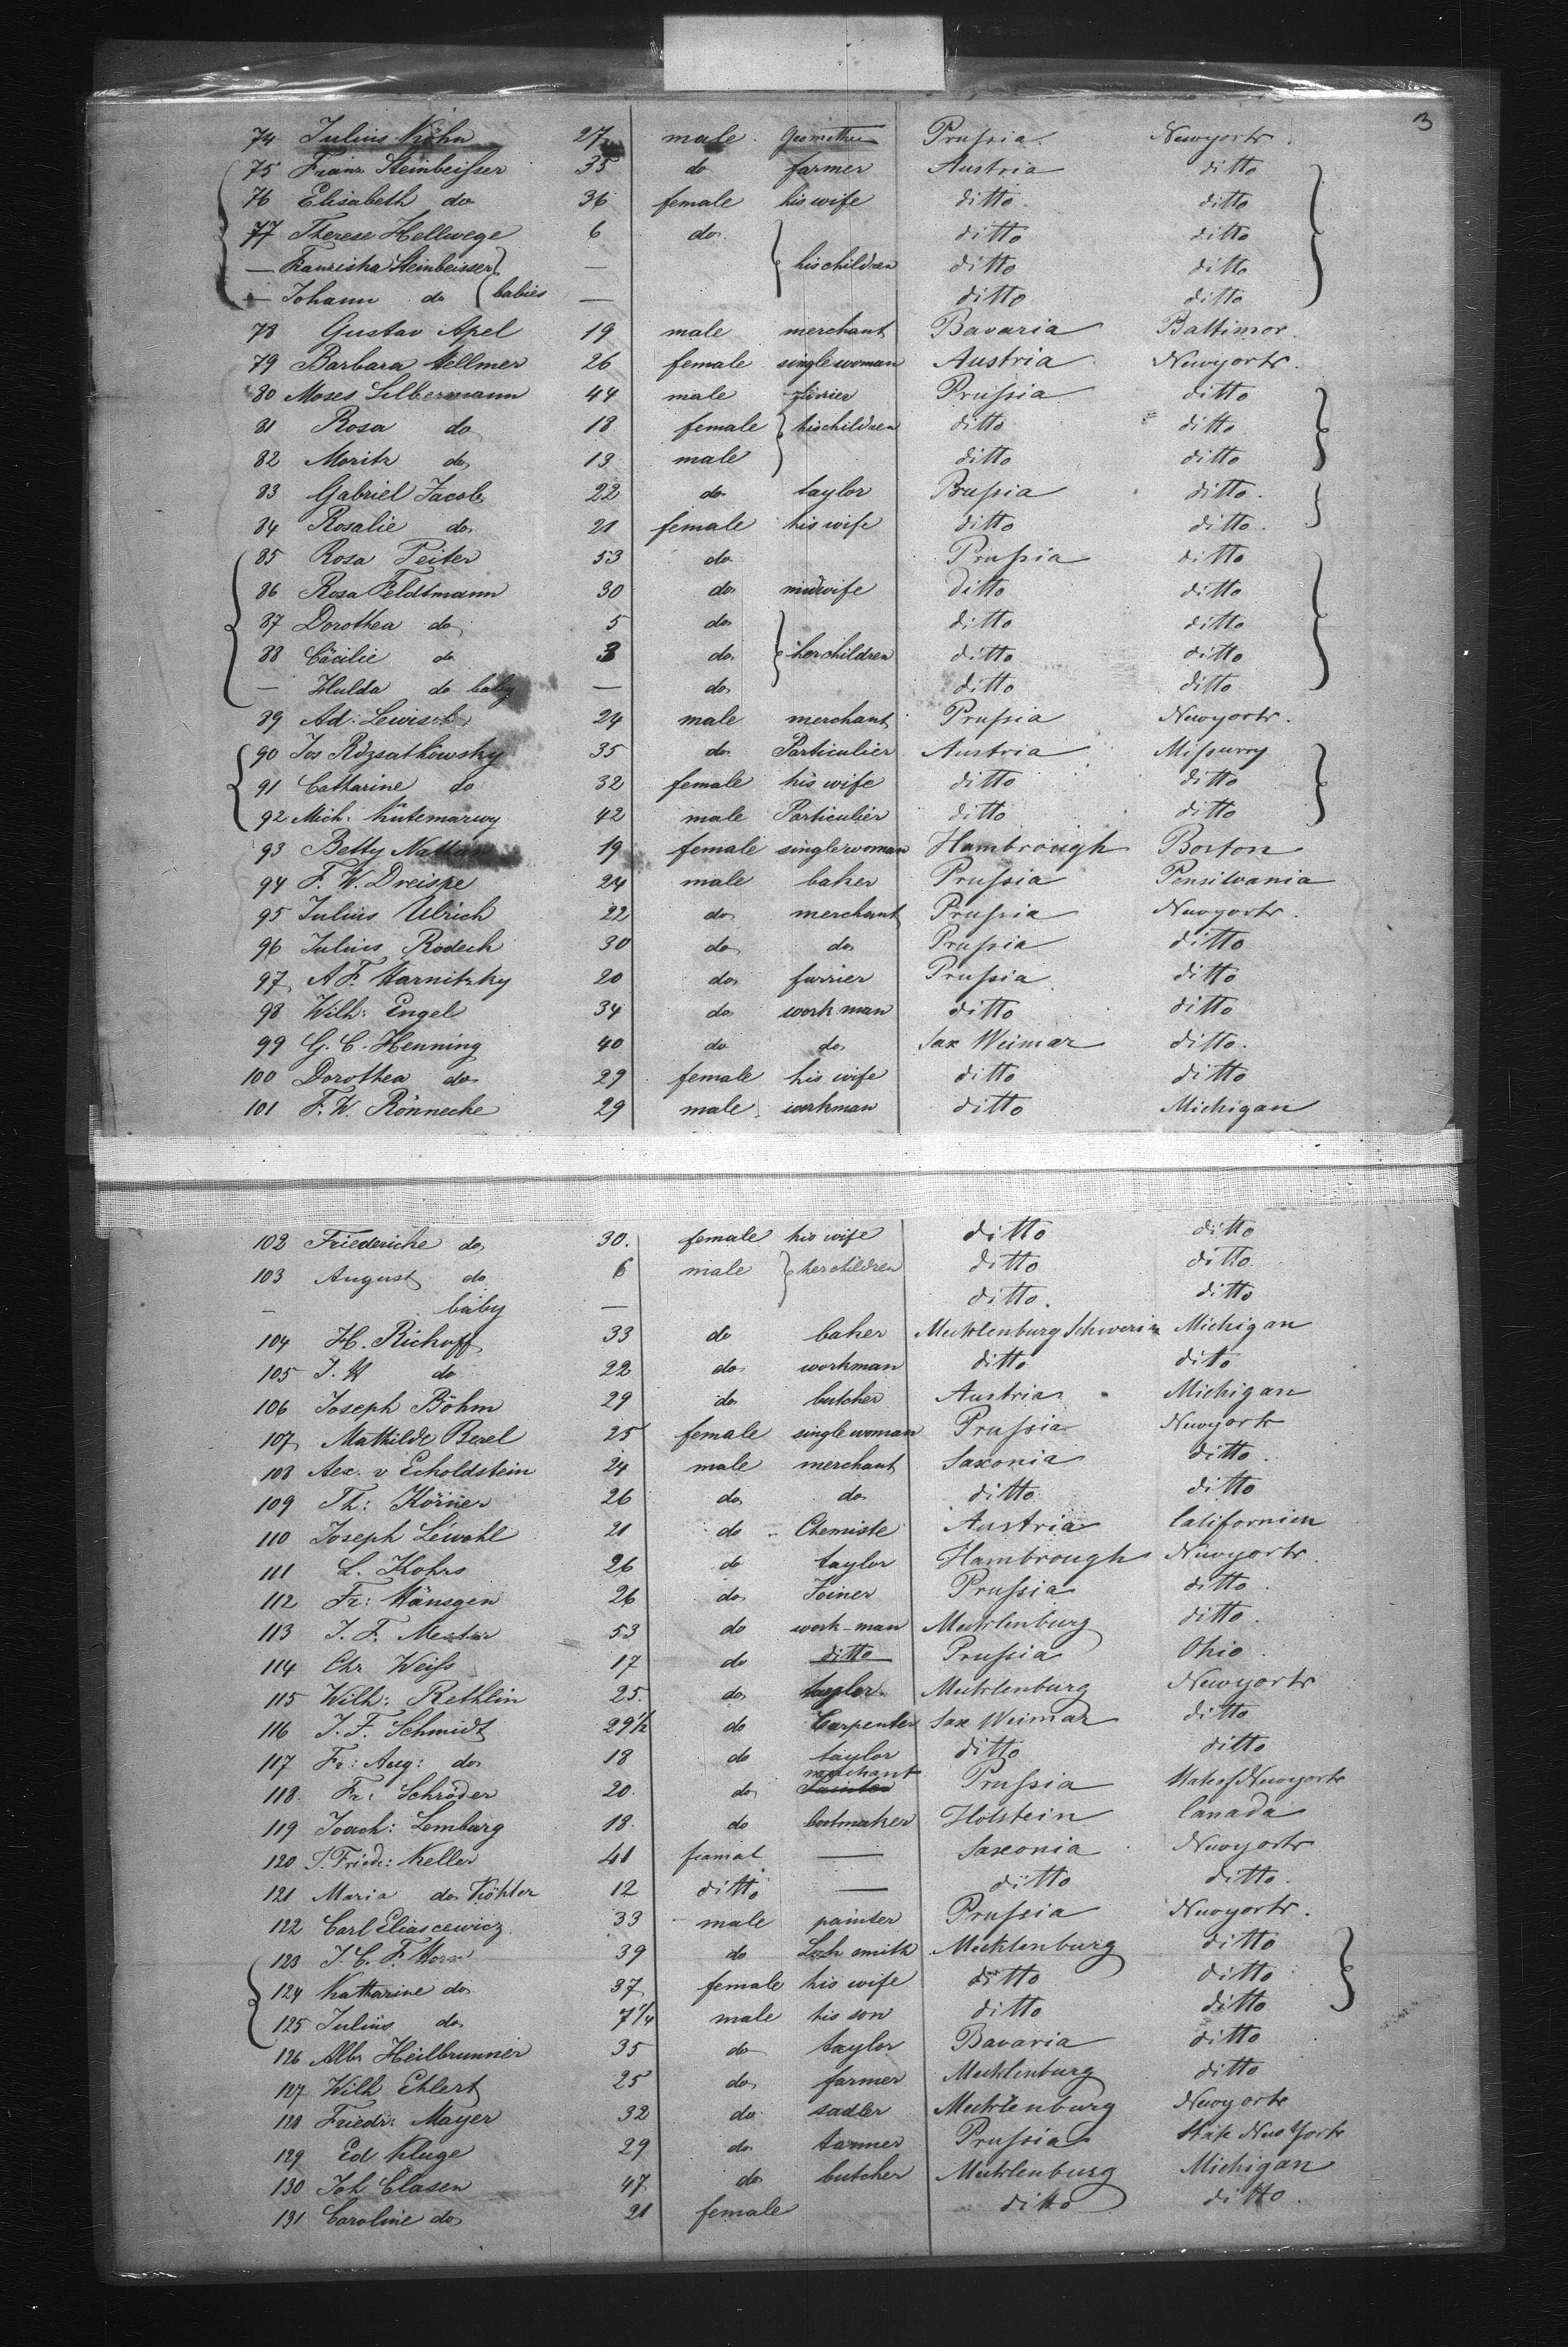 3
74 Julius Köhn 27 male Geomether Prussia Newyork
75 Franz Steinbeisser 35 do farmer Austria ditto
76 Elisabeth do 36 female his wife ditto ditto
77 Therese Hellwege 6 do ditto ditto
— Franziska Steinbeisser — his children ditto ditto
— Johann do babies — ditto ditto
78 Gustav Apel 19 male merchant Bavaria Baltimor
79 Barbara Hellmer 26 female single woman Austria Newyork
80 Moses Silbermann 44 male Prussia ditto
81 Rosa do 18 female his children ditto ditto
82 Moritz do 13 male ditto ditto
83 Gabriel Jacob 22 do taylor Prussia ditto
84 Rosalie do 21 female his wife ditto ditto
85 Rosa Peiter 53 do Prussia ditto
86 Rosa Feldtmann 30 do midwife ditto ditto
87 Dorothea do 5 do ditto ditto
88 Cäcilie do 3 do her children ditto ditto
— Hulda do baby — do ditto ditto
89 Ad: Lewisch 24 male merchant Prussia Newyork.
90 Jos Rozsatkowsky 35 do Particulier Austria Missurry
91 Catharine do 32 female his wife ditto ditto
92 Mich: Kutemarwy 42 male Particulier ditto ditto
93 Betty Nathan 19 female single woman Hambrough Boston
94 F. W. Dreispe 24 male baker Prussia Pensilvania
95 Julius Ulrich 22 do merchant Prussia Newyork.
96 Julius Rodeck 30 do do Prussia ditto
97 A F. Warnitzky 20 do furrier Prussia ditto
98 Wilh: Engel 34 do work man ditto ditto
99 G. C. Henning 40 do do Sax Weimar ditto.
100 Dorothea do 29 female his wife ditto ditto
101 F. W. Rönnecke 29 male workman ditto Michigan
102 Friedericke do 30. female his wife ditto ditto
103 August do 6 male her children ditto ditto
— baby — ditto. ditto
104 H. Richoff 33 do baker Mecklenburg Schwerin Michigan
105 J. H do 22 do workman ditto ditto
106 Joseph Böhm 29 do butcher Austria Michigan
107 Mathilde Besel 25 female single woman Prussia Newyork
108 Aex. v Echoldstein 24 male merchant Saxonia ditto.
109 Th: Körner 26 do do ditto ditto
110 Joseph Lewohl 21 do Chemiste Austria Californien
111 L. Kohrs 26 do taylor Hambrough Newyork
112 Fr: Hänsgen 26 do Joiner Prussia ditto.
113 J. F. Mester 53 do work-man Mecklenburg ditto.
114 Chr Weiss 17 do ditto Prussia Ohio.
115 Wilh: Rethlin 25. do taylor Mecklenburg Newyork
116 J. F. Schmidt 29 1/2 do Carpenter Sax Weimar ditto
117 Fr: Aug: do 18 do taylor ditto ditto
118. Fr: Schröder 20. do merchant Prussia State of Newyork
119 Joach: Lembarg 18. do bootmaker Holstein Canada
120 J. Friedr: Keller 41 feamal — Saxonia Newyork
121 Maria do Köhler 12 ditto — ditto ditto.
122 Carl Eliascewicz 33 male painter Prussia Newyork.
123 J. C. F. Horn 39 do Loch smith Mecklenburg ditto
124 Katharine do 37 female his wife ditto ditto
125 Julius do 7 1/4 male his son ditto ditto
126 Albr Heilbrunner 35 do taylor Bavaria ditto
127 Wilh Ehlert 25 do farmer Mecklenburg ditto
128 Friedr: Mayer 32 do sadler Mecklenburg Newyork
129 Ed Kluge 29 do tanner Prussia State New York
130 Joh Clasen 47 do butcher Mecklenburg Michigan
131 Caroline do 21 female ditto ditto.